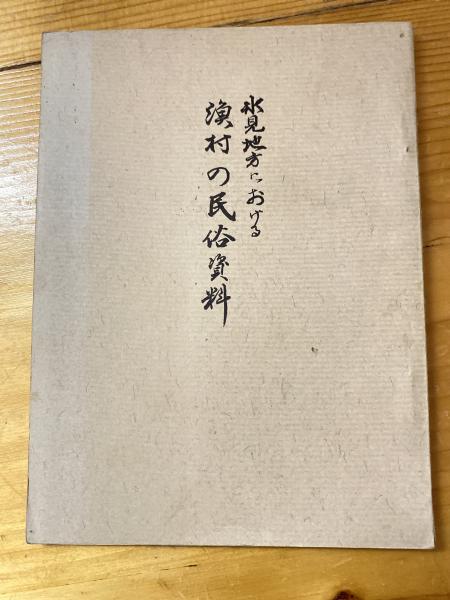 氷見地方における
漁村の民俗資料